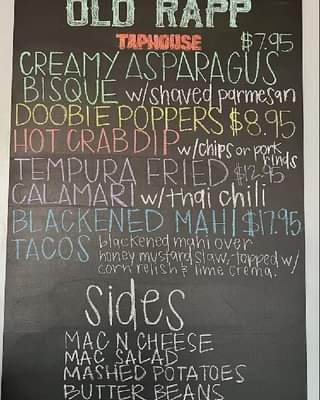 OLD RAPP
TAPHOUSE $7.95
CREAMY ASPARAGUS
BISQUE w/shaved parmesan
DOOBIE POPPERS $8.95
HOT CRAB DIP w/chips or pork rinds
TEMPURA FRIED $12.95
CALAMARI w/thai chili
BLACKENED MAHI $17.95
TACOS blackened mahi over
honey mustard slaw, topped w/
corn relish & lime crema.
Sides
MAC N CHEESE
MAC SALAD
MASHED POTATOES
BUTTER BEANS